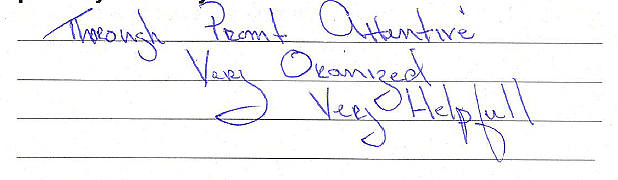 Through Promt Attentive
Very Oranized
Very Helpfull